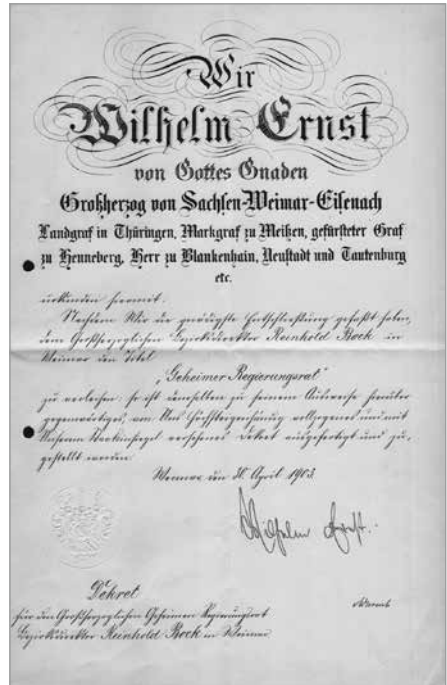 Wir
Wilhelm Ernst
von Gottes Gnaden
Großherzog von Sachsen-Weimar-Eisenach
Landgraf in Thüringen, Markgraf zu Meißen, gefürsteter Graf
zu Henneberg, Herr zu Blankenhain, Neustadt und Tautenburg
etc.
urkunden hiermit:
Nachdem Wir die gnädigste Entschließung gefaßt haben,
dem Großherzoglichen Bezirksdirektor Reinhold Bock in
Weimar den Titel
„Geheimer Regierungsrat“
zu verleihen: so ist demselben zu seinem Ausweise hierüber
gegenwärtiges, von Uns Höchsteigenhändig vollzogenes und mit
Unserem Staatsinsiegel versehenes Dekret ausgefertigt und zu-
gestellt worden.
Weimar, den 30. April 1903.
Wilhelm Ernst.
Dekret
für den Großherzoglichen Geheimen Regierungsrat
Bezirksdirektor Reinhold Bock in Weimar